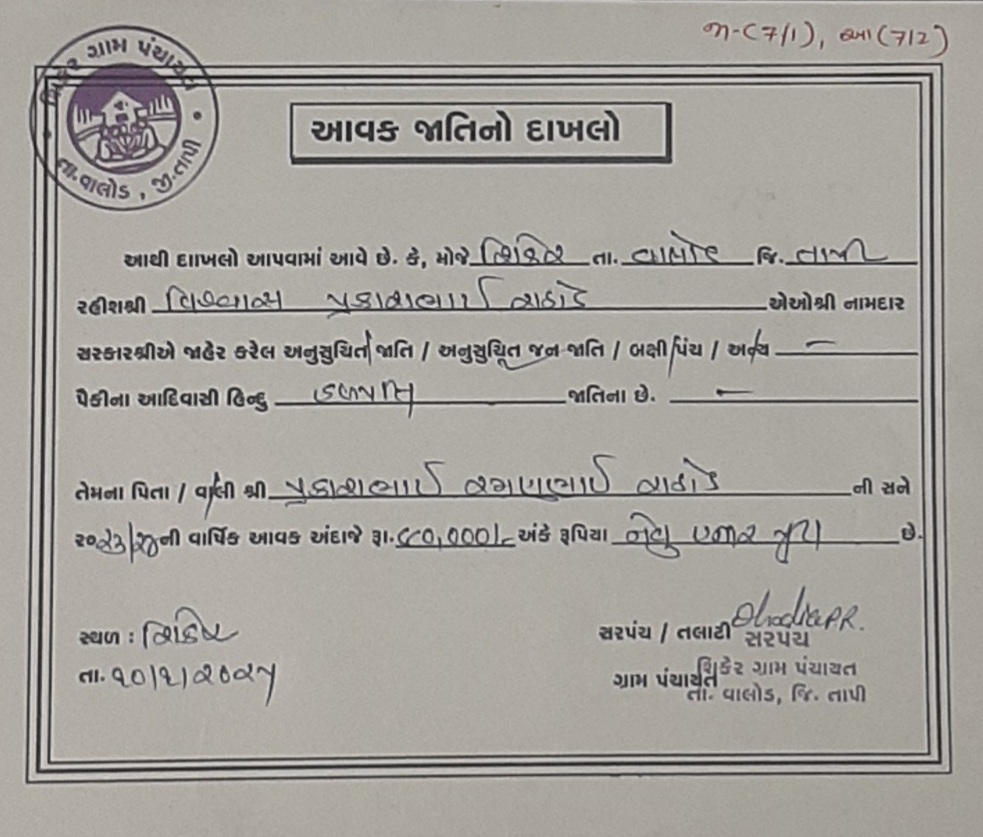 જા-(7/1), આ(7/2)
શિકેર ગ્રામ પંચાયત
તા.વાલોડ, જી.તાપી
આવક જાતિનો દાખલો
આથી દાાખલો આપવામાં આવે છે. કે, મોજે શિકેર તા. વાલોડ જિ. તાપી
રહીશશ્રી વિશ્વાસ પ્રકાશભાઈ રાઠોડ એઓશ્રી નામદાર
સરકારશ્રીએ જાહેર કરેલ અનુસુચિત જાતિ / અનુસુચિત જન-જાતિ / બક્ષી પંચ / અન્ય —
પૈકીના આદિવાસી હિન્દુ હળપતિ જાતિના છે. —
તેમના પિતા / વાલી શ્રી પ્રકાશભાઈ રમણભાઈ રાઠોડ ની સને
૨૦૨૩/૨૪ની વાર્ષિક આવક અંદાજે રૂા. ૯૦,૦૦૦/- અંકે રૂપિયા નેવુ હજાર પુરા છે.
સ્થળ : શિકેર
સરપંચ / તલાટી
સરપંચ
તા. ૧૦/૧/૨૦૨૫
ગ્રામ પંચાયત
શિકેર ગ્રામ પંચાયત
તા. વાલોડ, જિ. તાપી